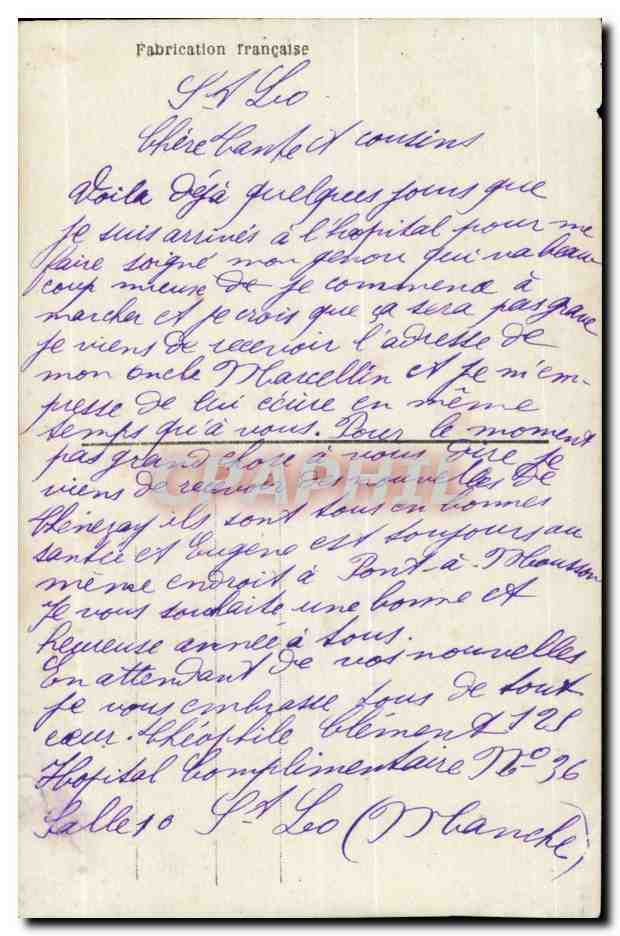 Fabrication française
St Lo
Chère tante et cousins
Voila déjà quelques jours que
je suis arrivés à l'hopital pour me
faire soigné mon genou qui va beau
coup mieuse de je commence à
marcher et je crois que ça sera pas grave
je viens de recevoir l'adresse de
mon oncle Marcellin et je m'em-
presse de lui écrire en même
temps qu'à vous. Pour le moment
pas grand chose à vous dire je
viens de recevoir des nouvelles de
Thénezay ils sont tous en bonnes
santée et Eugène est toujours au
même endroit à Pont-à-Mousson
Je vous souhaite une bonne et
heureuse année à tous.
En attendant de vos nouvelles
je vous embrasse tous de tout
cœur. Théophile Clément 125
Hopital Complimentaire No 36
Salle 10 St Lo (Manche)
CPAPHIL